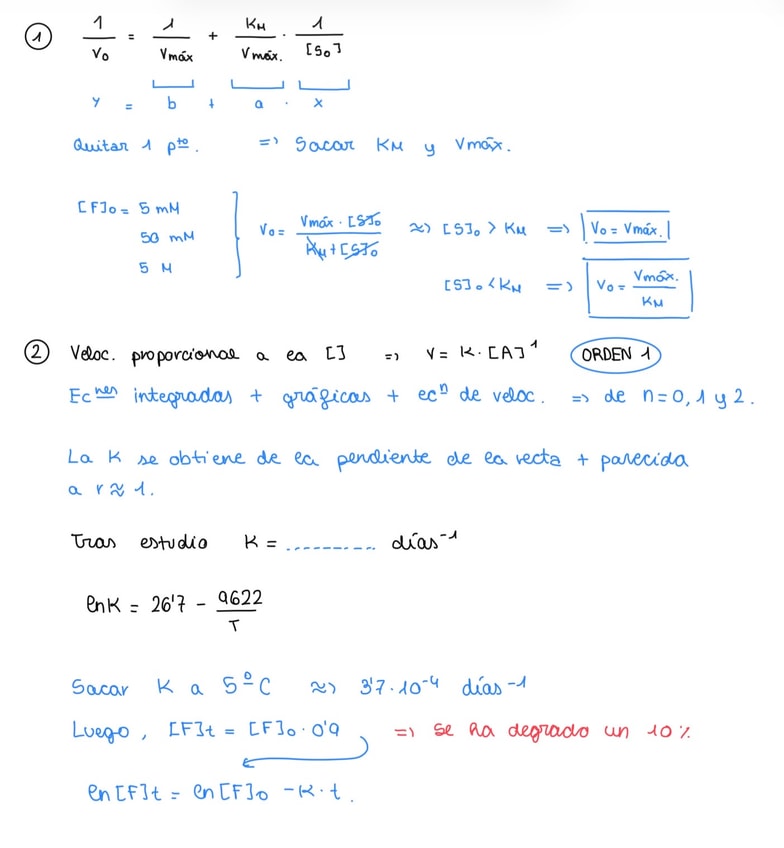 ① 1/V₀ = 1/Vmáx + KM/Vmáx. · 1/[S₀]
y = b + a · x
Quitar 1 pto. => Sacar KM y Vmáx.
[F]₀ = 5 mM
50 mM
5 M
V₀ = Vmáx · [S]₀ / KM + [S]₀ ≈> [S]₀ > KM => V₀ = Vmáx.
[S]₀ < KM => V₀ = Vmáx. / KM
② Veloc. proporcional a la [] => V = K · [A]¹ ORDEN 1
Ecnes integradas + gráficas + ecn de veloc. => de n=0, 1 y 2.
La K se obtiene de la pendiente de la recta + parecida
a r ≈ 1.
Tras estudio K = ............ días⁻¹
lnK = 26'7 - 9622/T
Sacar K a 5ºC ≈> 3'7·10⁻⁴ días⁻¹
Luego, [F]t = [F]₀ · 0'9 => se ha degrado un 10%
ln[F]t = ln[F]₀ - K·t.